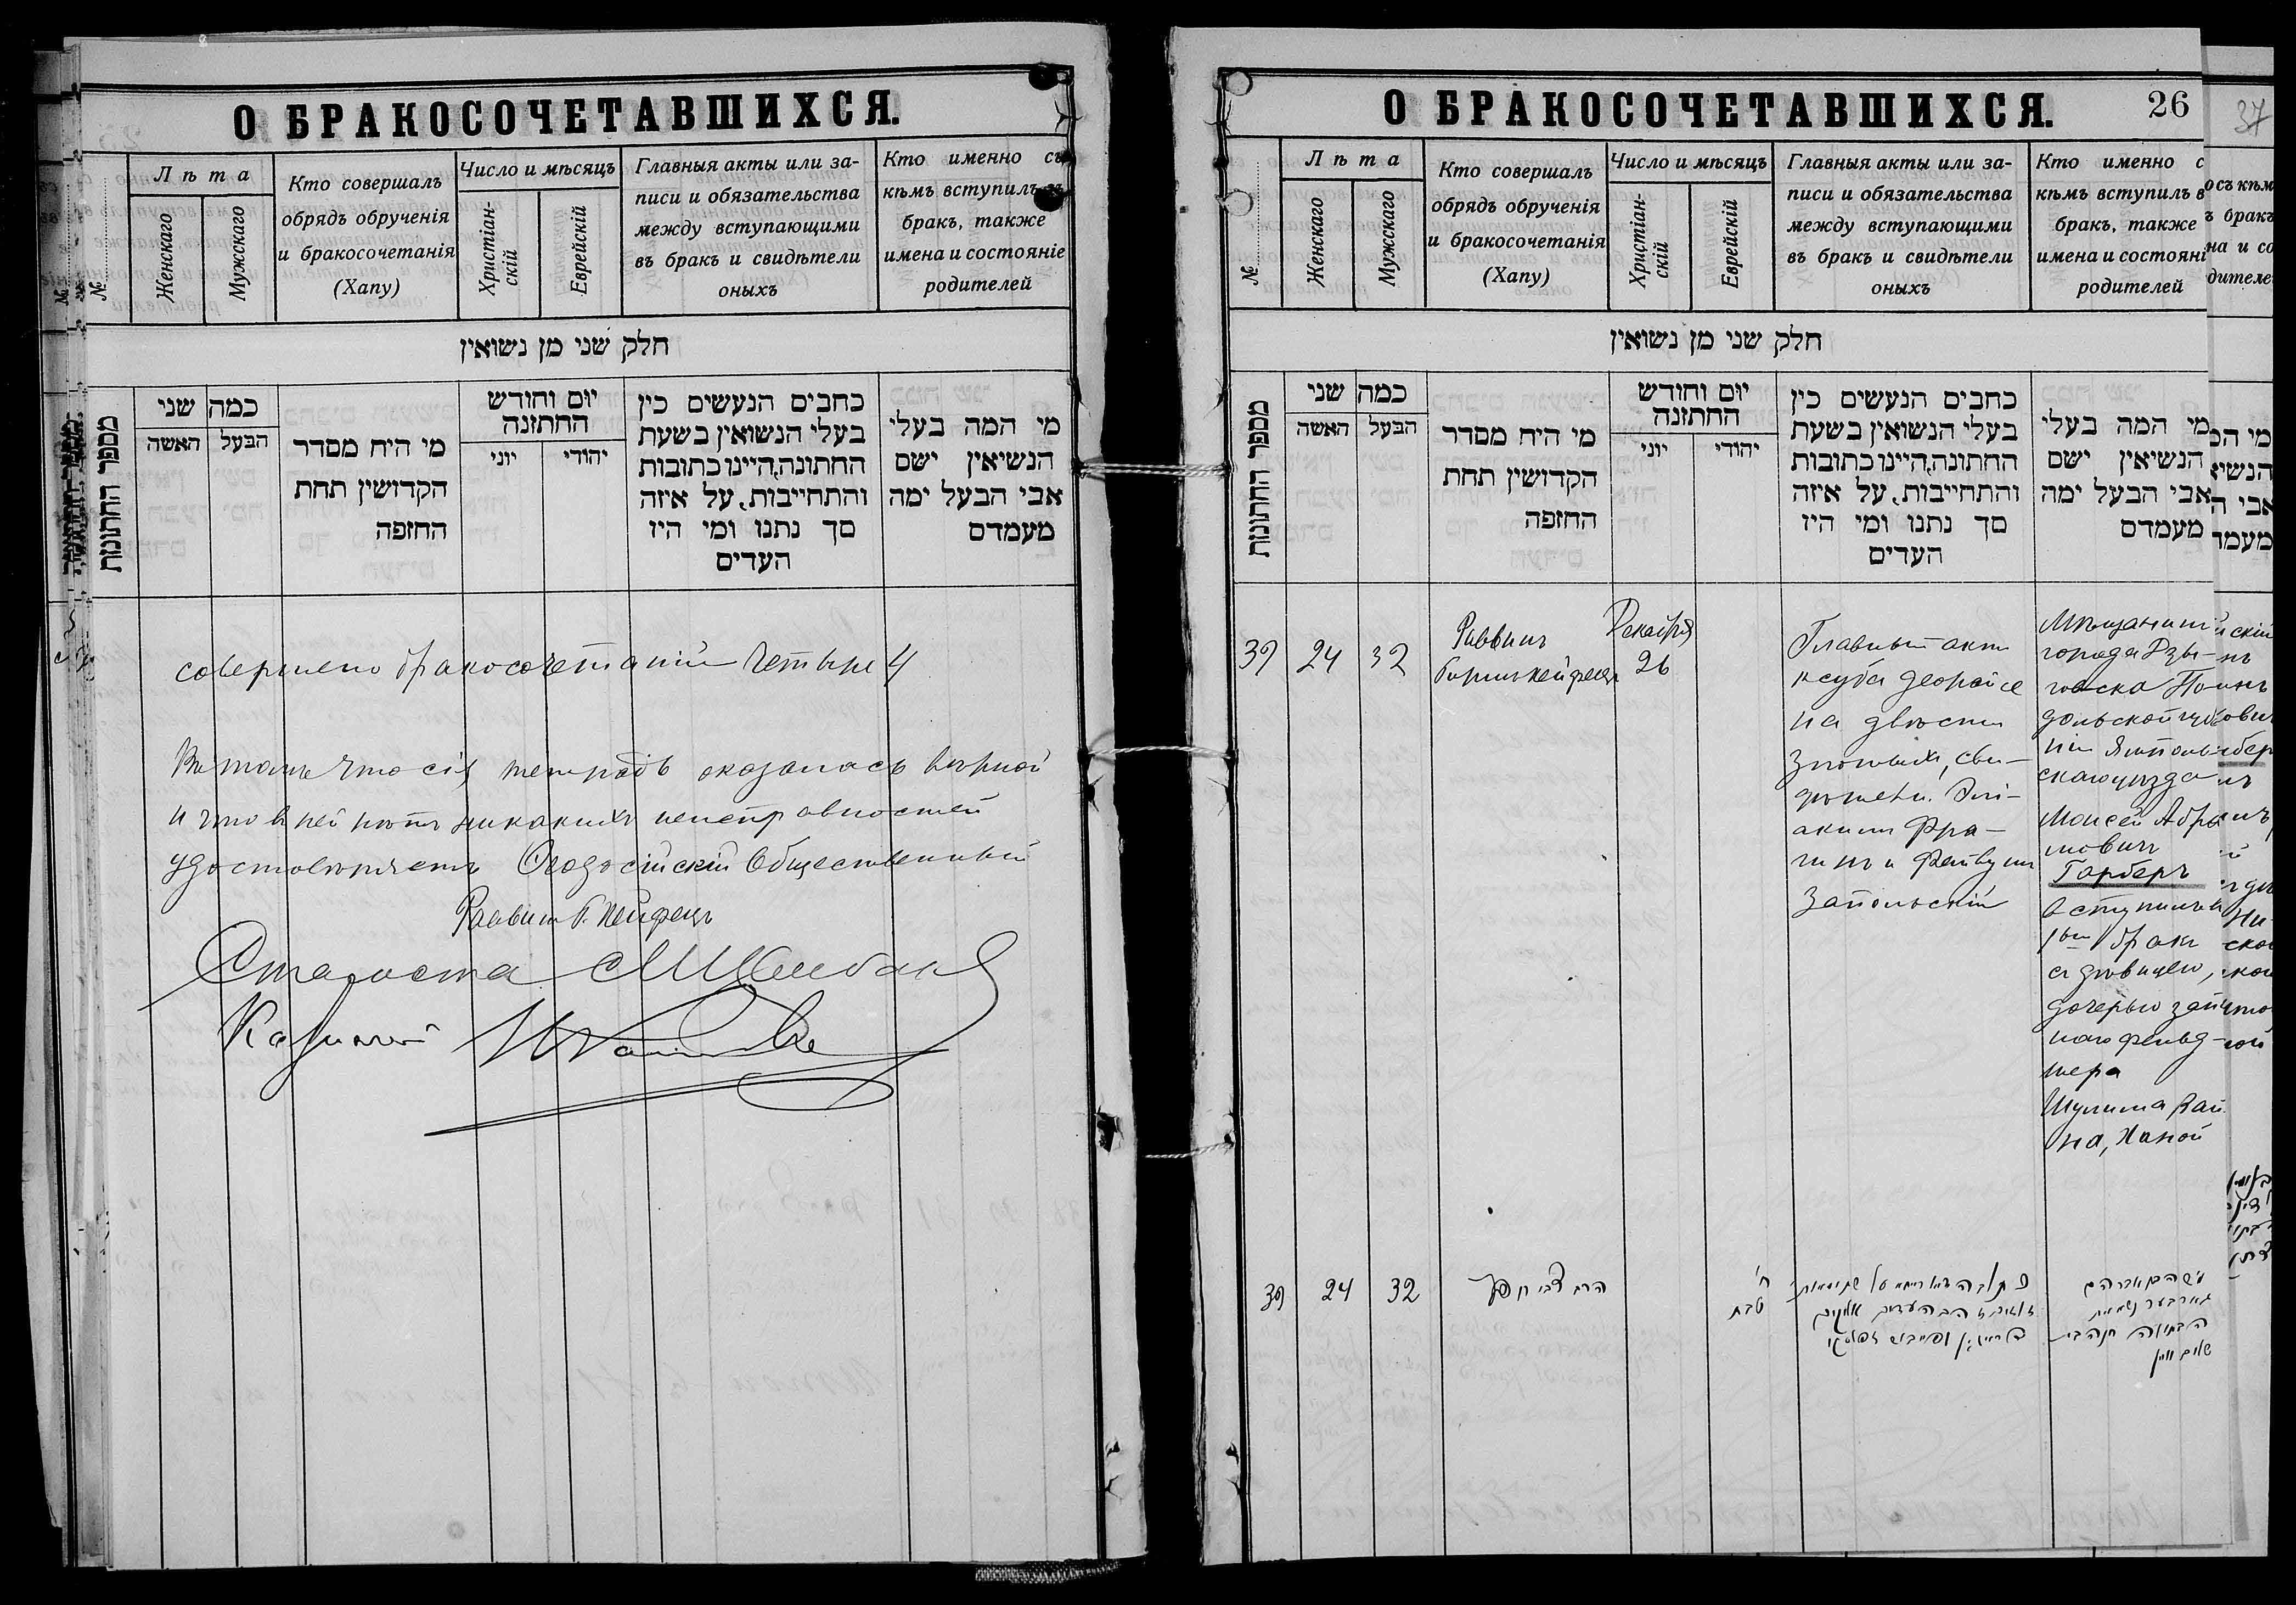 О БРАКОСОЧЕТАВШИХСЯ.
№
Лѣта
Женскаго
Мужскаго
Кто совершалъ
обрядъ обрученія
и бракосочетанія
(Хапу)
Число и мѣсяцъ
Христіан-
скій
Еврейскій
Главныя акты или за-
писи и обязательства
между вступающими
въ бракъ и свидѣтели
оныхъ
Кто именно съ
кѣмъ вступилъ въ
бракъ, также
имена и состояніе
родителей
חלק שני מן נשואין
מספר החתונות
כמה שני
האשה
הבעל
מי היח מסדר
הקדושין תחת
החזפה
יום וחודש
החתונה
יוני
יהודי
כחבים הנעשים כין
בעלי הנשואין בשעת
החתונה, היינו כתובות
והתחייבות, על איזה
סך נתנו ומי היז
העדים
מי המה בעלי
הנשיאין ישם
אבי הבעל ימה
מעמדם
совершено бракосочетаній четыре 4
Въ томъ что сія тетрадь оказалась вѣрной
и что в ней нѣтъ никакихъ неисправностей
удостовѣряетъ Ѳеодосійскій Общественный
Раввинъ Б. Хейфецъ
Староста
Казначей
О БРАКОСОЧЕТАВШИХСЯ.
26
37
№
Лѣта
Женскаго
Мужскаго
Кто совершалъ
обрядъ обрученія
и бракосочетанія
(Хапу)
Число и мѣсяцъ
Христіан-
скій
Еврейскій
Главныя акты или за-
писи и обязательства
между вступающими
въ бракъ и свидѣтели
оныхъ
Кто именно с
кѣмъ вступилъ в
бракъ, также
имена и состояні
родителей
חלק שני מן נשואין
מספר החתונות
כמה שני
האשה
הבעל
מי היח מסדר
הקדושין תחת
החזפה
יום וחודש
החתונה
יוני
יהודי
כחבים הנעשים כין
בעלי הנשואין בשעת
החתונה, היינו כתובות
והתחייבות, על איזה
סך נתנו ומי היז
העדים
מי המה בעלי
הנשיאין ישם
אבי הבעל ימה
מעמדם
39
24
32
Раввинъ
Хейфецъ
Декабря
26
Главный актъ
ксуба деорайсе
на двѣсти
злотыхъ, сви-
дѣтели
и Фейвушъ
Запольскій
Мѣщанинъ
города
Подольской губер
ніи Ямполь
скаго уѣзда
Моисей Абра
мовичъ
Гарберъ
вступилъ въ
1ый бракъ
съ дѣвицею,
дочерью
наго фельд-
шера
Шулима Вай
на, Ханой
39
24
32
הרב צבי חפץ
ח'
טבת
משה בן אברהם
גארבער נשא את
הבתולה חנה בת
שלום וויין